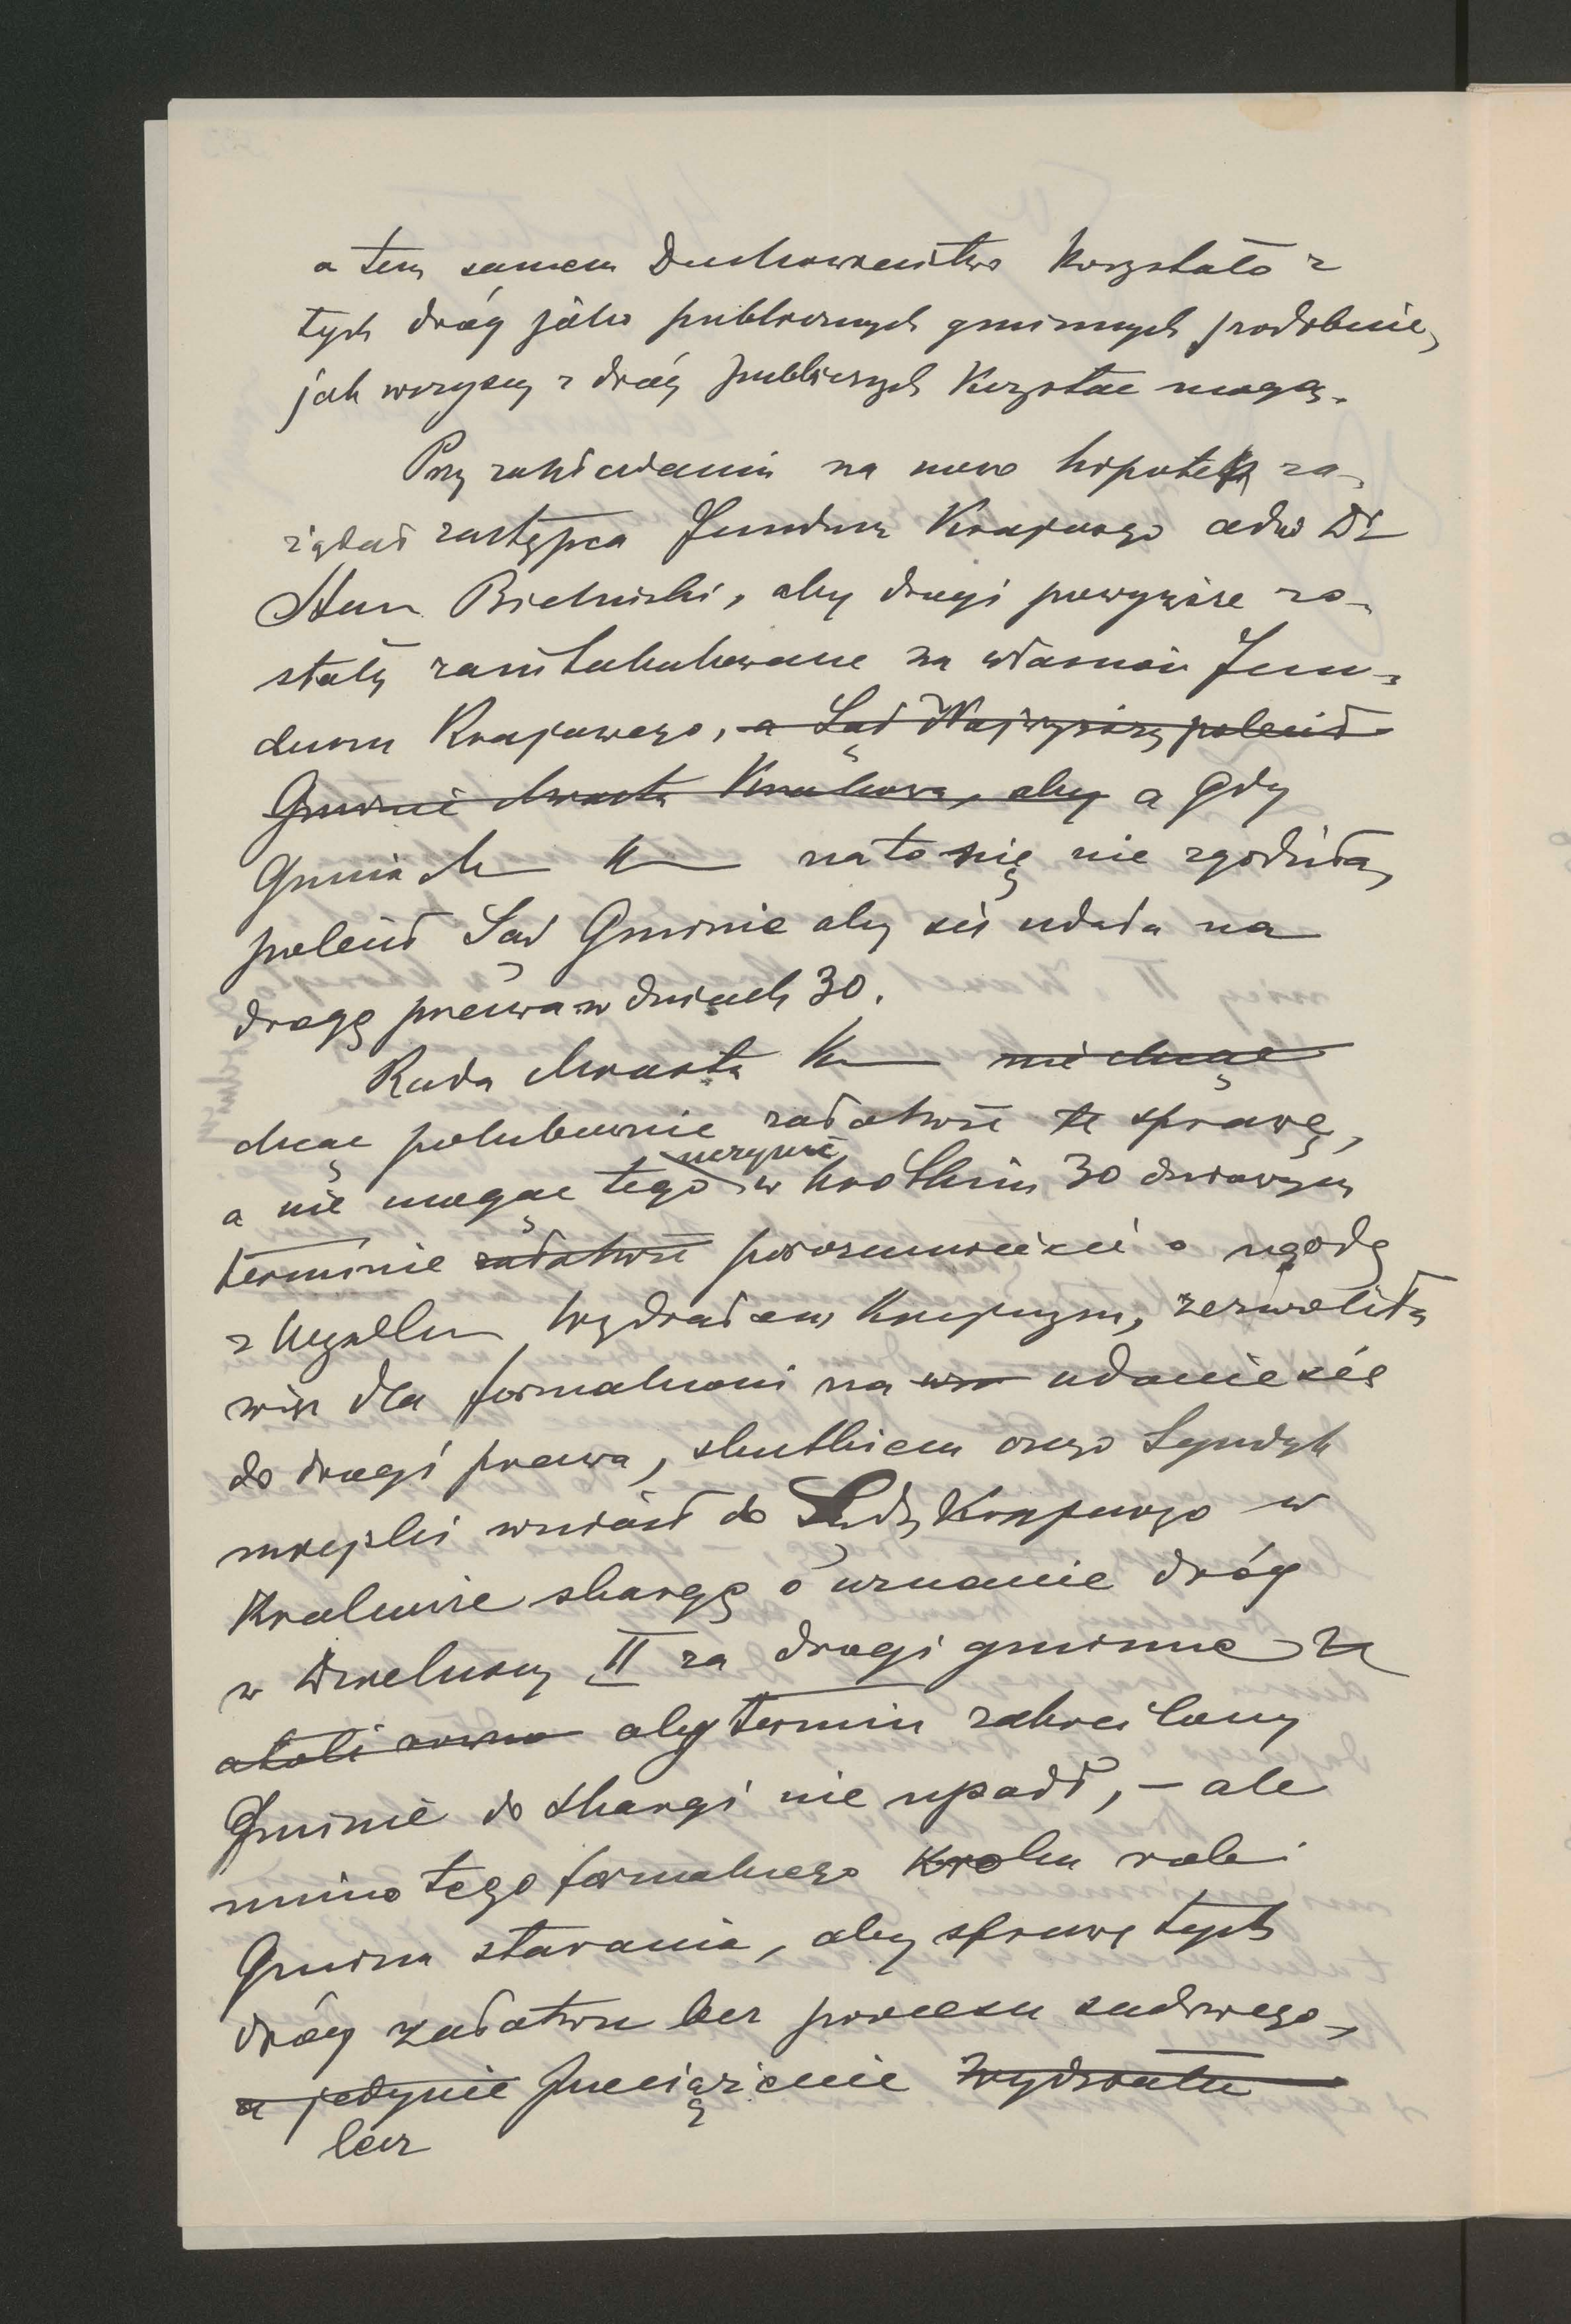 a tem samem Duchowieństwo korzystało z
tych dróg jako publicznych gminnych podobnie,
jak wszyscy z dróg publicznych korzystać mogą.
Przy zakładaniu na nowo hipoteki za-
żądał zastępca Funduszu Krajowego adw Dr
Stan. Bieliński, aby drogi powyższe zo-
stały zaintabulowane na własność Fun-
duszu Krajowego, a Sąd Najwyższy polecił
Gminie Miasta Krakowa, aby a gdy
Gmina M K na to się nie zgodziła,
polecił Sąd Gminie aby się udała na
drogę prawa w dniach 30.
Rada Miasta K nie chcąc
chcąc polubownie załatwić tę sprawę,
a nie mogąc tego uczynić w krótkim 30 dniowym
terminie załatwić porozumieć się o ugodę
z Wydziałem Krajowym, zezwoliła
więc dla formalności na udanie się
do drogi prawa, skutkiem czego Syndyk
miejski wniósł do Sądu Krajowego w
Krakowie skargę o uznanie dróg
w Dzielnicy II za drogi gminne
aby termin zakreślony
Gminie do skargi nie upadł, – ale
mimo tego formalnego kroku robi
Gmina starania, aby sprawę tych
dróg załatwić bez procesu sądowego,
a jedynie Wydziału
bez